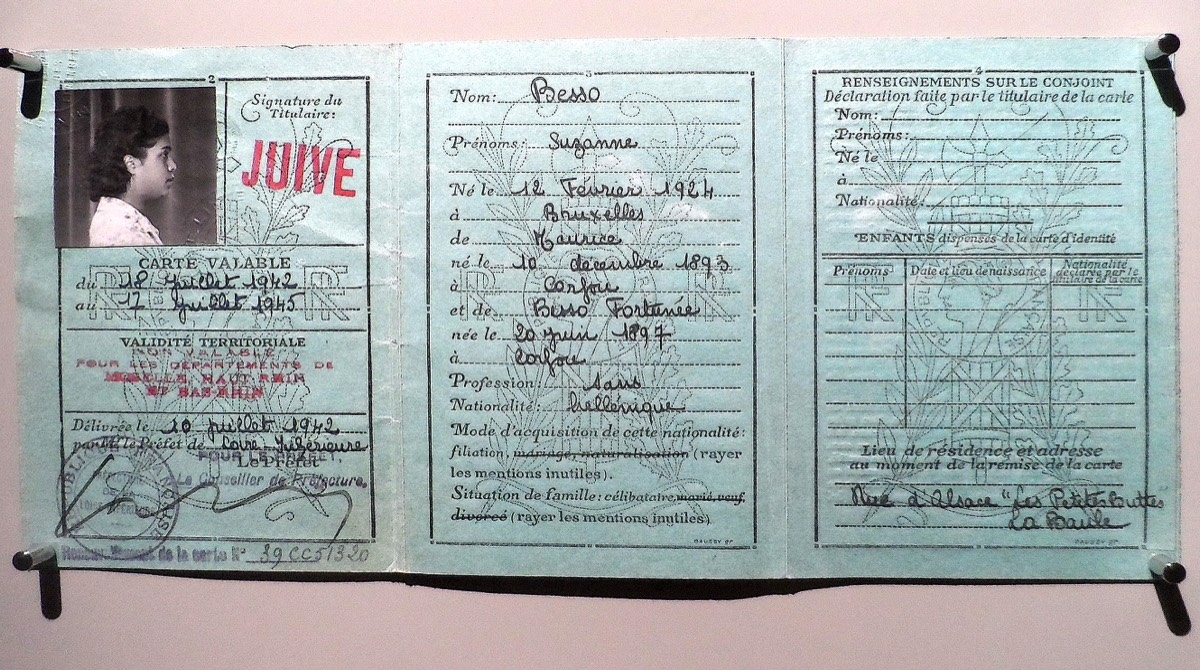 2
Signature du
Titulaire:
JUIVE
CARTE VALABLE
du 18 Juillet 1942
au 17 Juillet 1945
RF RF
VALIDITÉ TERRITORIALE
NON VALABLE
POUR LES DÉPARTEMENTS DE
MOSELLE, HAUT RHIN
ET BAS-RHIN
Délivrée le 10 juillet 1942
par le Préfet de Loire Inférieure
POUR LE PRÉFET,
Le Préfet
Le Conseiller de Préfecture.
de la carte N° 39CC51320
3
Nom: Besso
Prénoms: Suzanne
Né le 12 Février 1924
à Bruxelles
de Maurice
né le 10 décembre 1893
à Corfou
et de Besso Fortunée
née le 20 Juin 1897
à Corfou
Profession: sans
Nationalité: hellénique
Mode d'acquisition de cette nationalité:
filiation, mariage, naturalisation (rayer
les mentions inutiles).
Situation de famille: célibataire, marié, veuf,
divorcé (rayer les mentions inutiles)
4
RENSEIGNEMENTS SUR LE CONJOINT
Déclaration faite par le titulaire de la carte
Nom:
Prénoms:
Né le
à
Nationalité:
ENFANTS dispensés de la carte d'identité
Prénoms Date et lieu de naissance Nationalité
déclarée par le
titulaire de la carte
RF RF
RÉPUBLIQUE FRANÇAISE
Lieu de résidence et adresse
au moment de la remise de la carte
Rue d'Alsace "Les Petites Louttes
La Baule